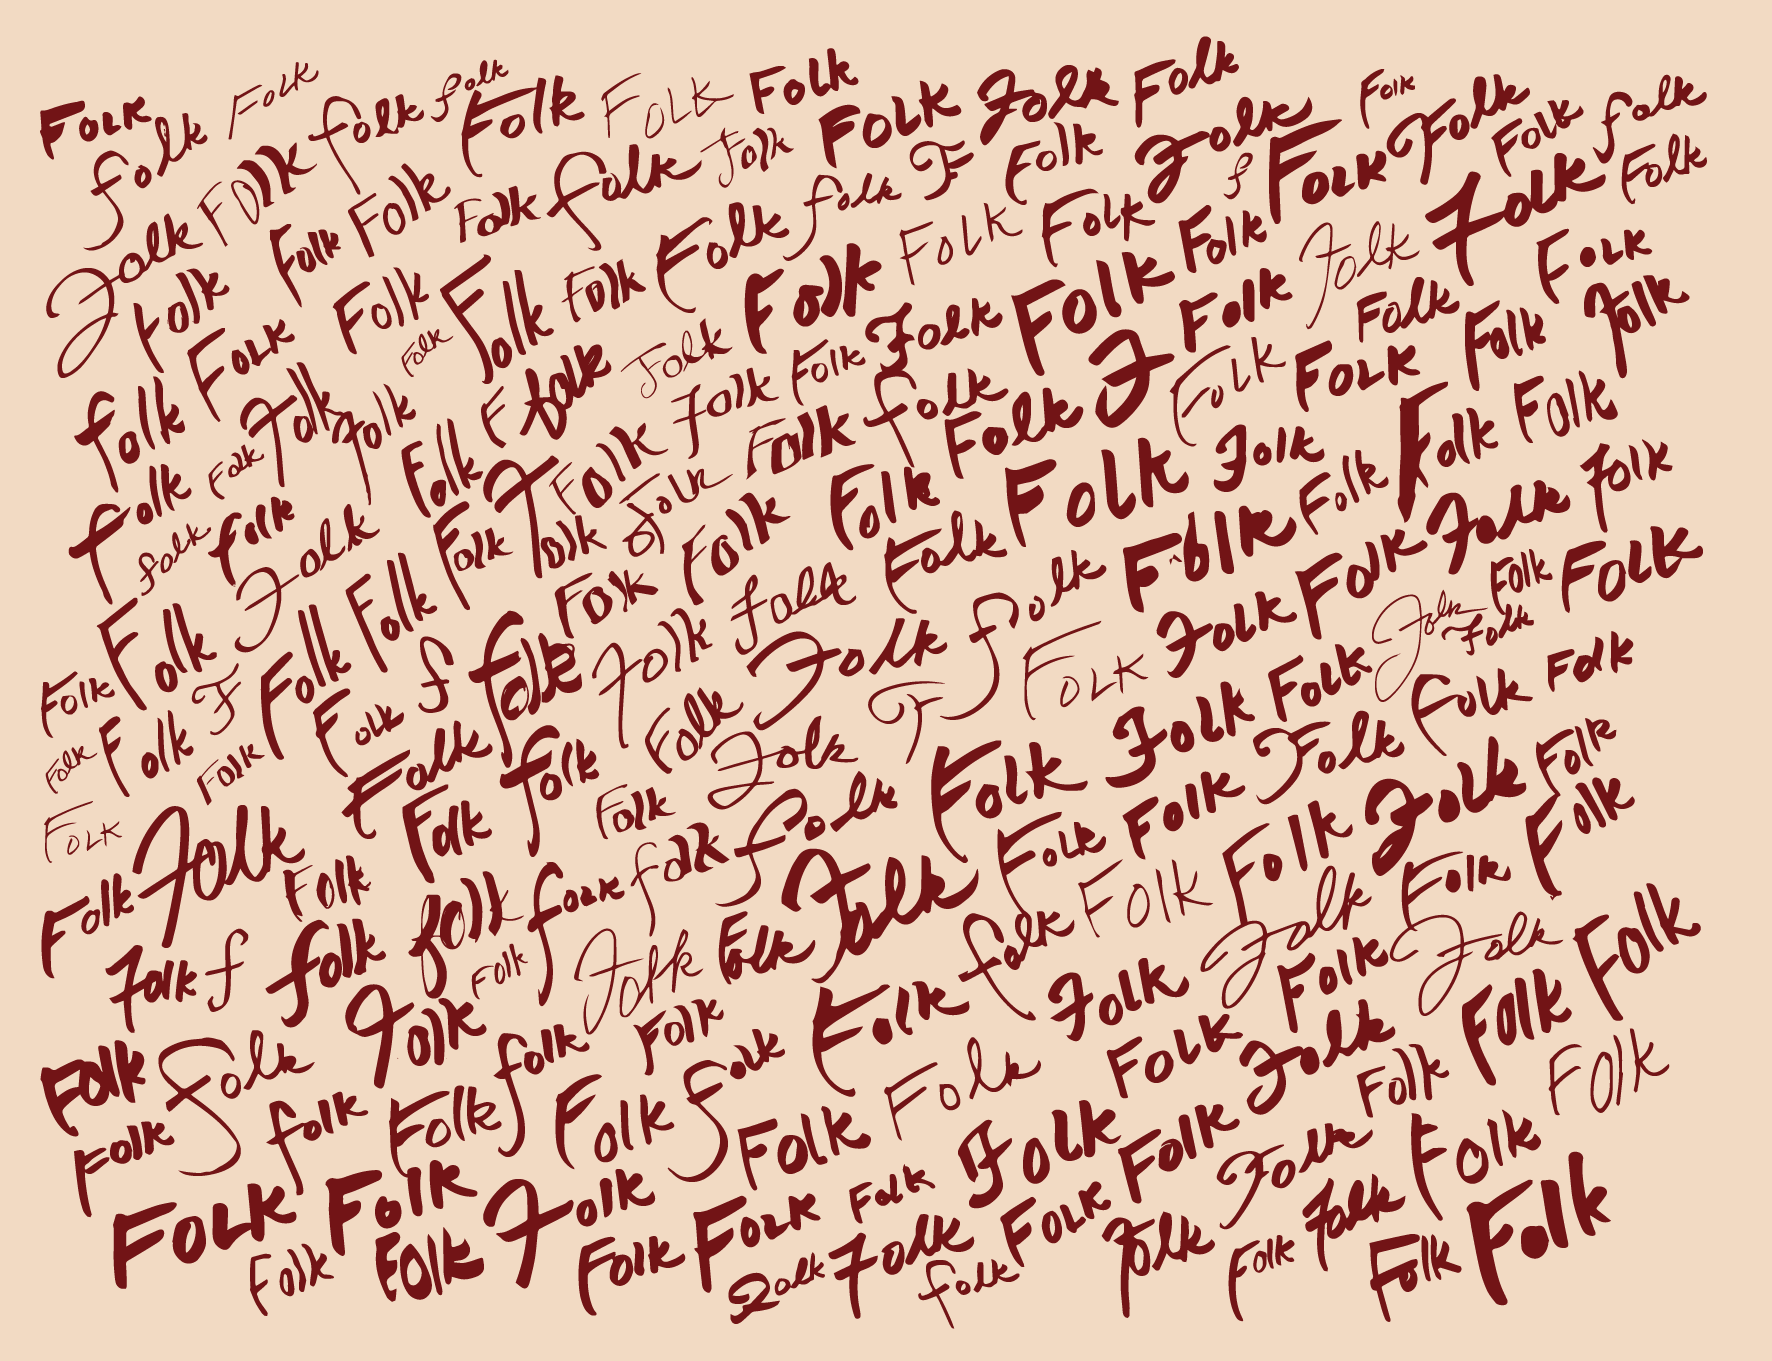 FOLK folk FOLK
Folk FOlk folk folk
Folk Folk Folk Folk FOLK Folk
Folk FOLK Folk Folk folk Folk FOLK Folk Folk
folk Folk Folk Folk Folk Folk folk F Folk Folk Folk
Folk Folk Folk Folk F folk Folk Folk FOLK FOLK Folk f FOLK Folk Folk folk
folk folk Folk Folk Folk Folk Folk Folk Folk Folk Folk Folk Folk Folk
Folk Folk Folk Folk Folk Folk Folk Folk folk Folk F Folk Folk FOLK
Folk Folk F Folk FOLK f folk Folk Folk Folk Folk Folk FOLK FOLK Folk Folk Folk
FOLK Folk Folk Folk Folk Folk folk Folk FOLK Folk Folk Folk Folk
Folk Folk Folk folk Folk Folk Folk F folk Folk Folk Folk Folk Folk
Folk f folk folk Folk folk folk folk FOLK FOLK Folk Folk Folk Folk Folk FOLK
Folk folk Folk Folk Folk Folk Folk Folk Folk Folk Folk Folk folk Folk
Folk folk Folk folk Folk Folk folk Folk Folk Folk Folk Folk
FOLK Folk Folk folk Folk Folk Folk Folk Folk Folk
Folk Folk Folk Folk FOLK Folk Folk FOLK Folk Folk Folk
Folk Folk folk FOLK Folk Folk Folk Folk
Folk Folk Folk Folk Folk Folk